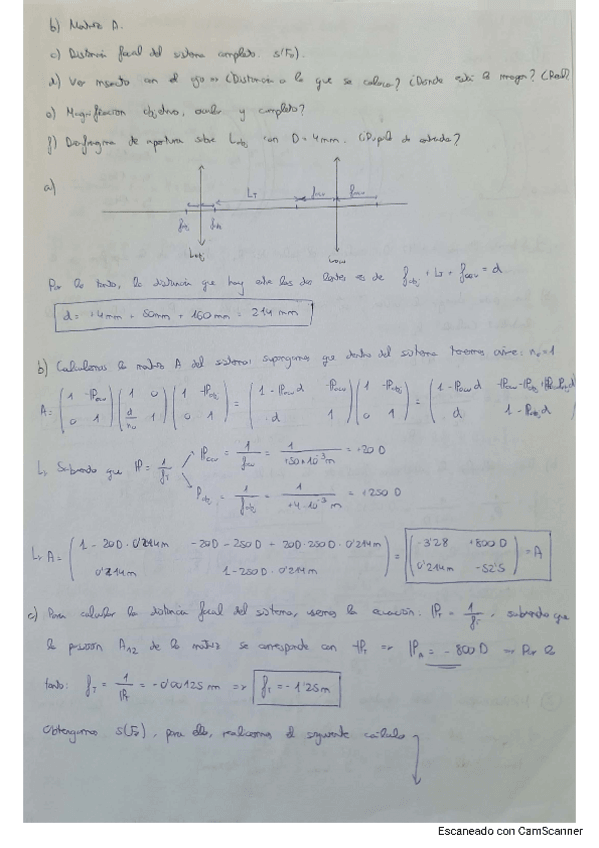 b) Matriz A.
c) Distancia focal del sistema completo. s(F₀).
d) Ver insecto con el ojo ∞ ¿Distancia a la que se coloca? ¿Dónde está la imagen? ¿Real?
e) Magnificación objetivo, ocular y completo?
f) Diafragma de apertura sobre Lobj con D = 4mm. ¿Pupila de entrada?
a)
LT
fobj fobj
Lobj Locu
Por lo tanto, la distancia que hay entre las dos lentes es de fobj + LT + focu = d
d = +4mm + 50mm + 160mm = 214 mm
b) Calculamos la matriz A del sistema: supongamos que dentro del sistema tenemos aire: n₀=1
A = (1 -Pocu; 0 1) (1 0; d/n₀ 1) (1 -Pobj; 0 1) = (1-Pocu d -Pocu; d 1) (1 -Pobj; 0 1) = (1-Pocu d -Pocu-Pobj+PobjPocu d; d 1-Pobj d)
↳ Sabiendo que P = 1/fT
Pocu = 1/focu = 1/+50*10⁻³m = +20 D
Pobj = 1/fobj = 1/+4·10⁻³m = +250 D
↳ A = (1 - 20D·0'214m -20D-250D + 20D·250D·0'214m; 0'214m 1-250D·0'214m) = (-3'28 +800D; 0'214m -52'5) = A
c) Para calcular la distancia focal del sistema, usamos la ecuación: PT = 1/fT, sabiendo que
la posición A12 de la matriz se corresponde con -PT => PA = -800D => Por lo
tanto: fT = 1/PT = -0'00125 mm => fT = -1'25m
Obtengamos s(F₀), para ello, realizamos el siguiente cálculo
Escaneado con CamScanner